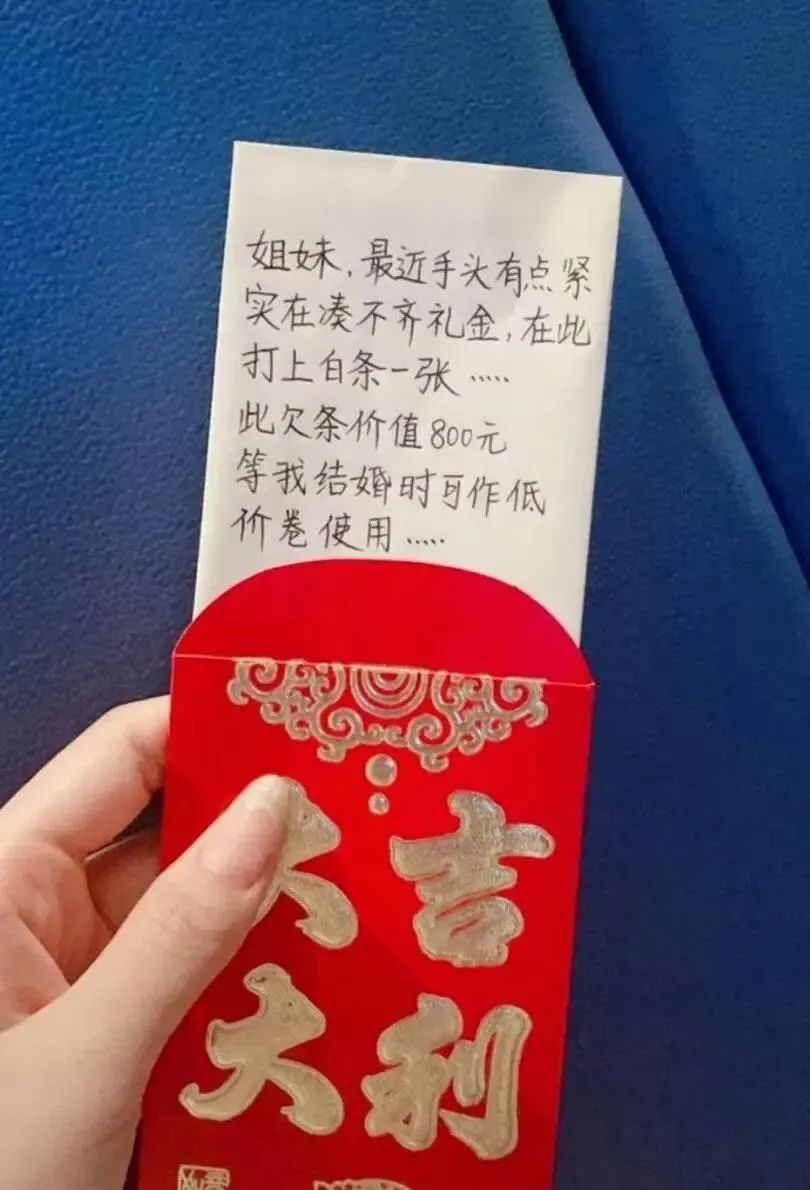 姐妹，最近手头有点紧
实在凑不齐礼金，在此
打上白条一张.....
此欠条价值800元
等我结婚时可作低
价卷使用.....
大吉
大利